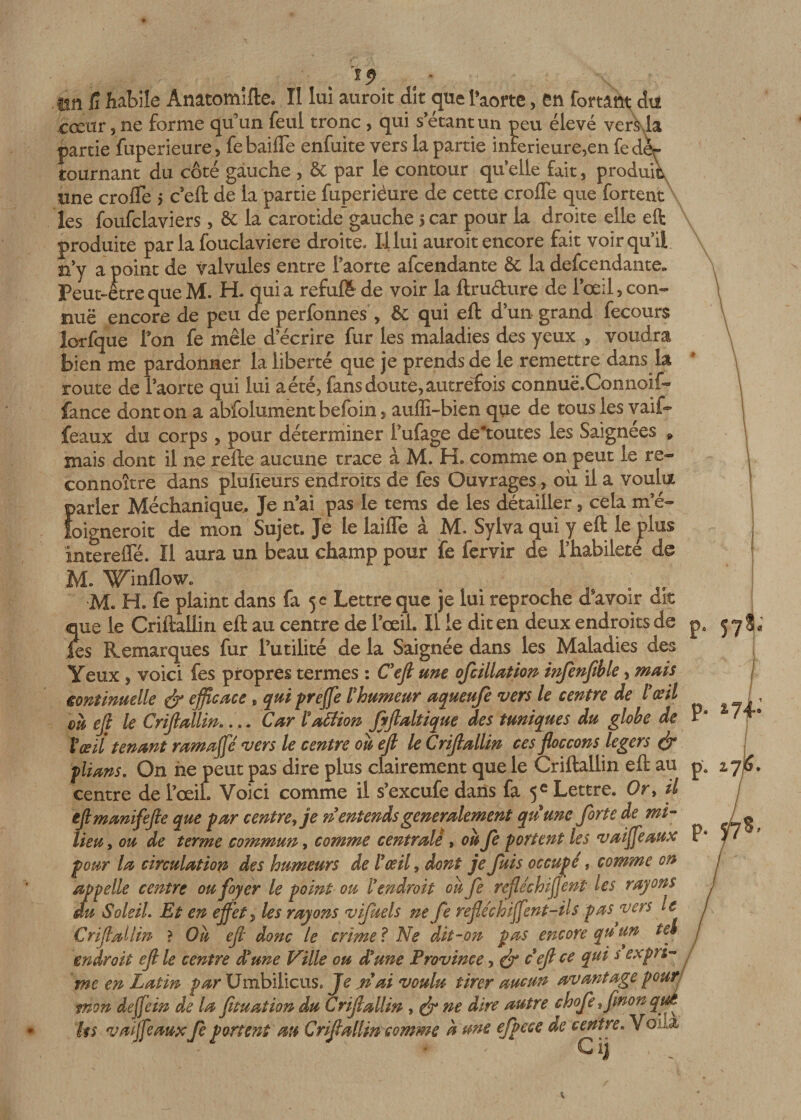 19
un ſi habile Anatomiſte. Il lui auroit dit que l'aorte, en ſortant du
cœur, ne forme qu'un ſeul tronc, qui s'étant un peu élevé vers la
partie ſuperieure, ſe baiſſe enſuite vers la partie inferieure, en ſe dé-
tournant du côté gauche, & par le contour qu'elle fait, produit
une croſſe ; c'eſt de la partie ſuperiéure de cette croſſe que ſortent
les ſouſclaviers, & la carotide gauche ; car pour la droite elle eſt
produite par la ſouclaviere droite. Il lui auroit encore fait voir qu'il
n'y a point de valvules entre l'aorte aſcendante & la deſcendante.
Peut-être que M. H. qui a refuſé de voir la ſtructure de l'œil, con-
nuë encore de peu de perſonnes, & qui eſt d'un grand ſecours
lorſque l'on ſe mêle d'écrire ſur les maladies des yeux, voudra
bien me pardonner la liberté que je prends de le remettre dans la
route de l'aorte qui lui a été, ſans doute, autrefois connuë. Connoiſ-
ſance dont on a abſolument beſoin, auſſi-bien que de tous les vaiſ-
ſeaux du corps, pour déterminer l'uſage de toutes les Saignées,
mais dont il ne reſte aucune trace à M. H. comme on peut le re-
connoître dans pluſieurs endroits de ſes Ouvrages, où il a voulu
parler Méchanique. Je n'ai pas le tems de les détailler, cela m'é-
loigneroit de mon Sujet. Je le laiſſe à M. Sylva qui y eſt le plus
intereſſé. Il aura un beau champ pour ſe ſervir de l'habileté de
M. Winſlow.
M. H. ſe plaint dans ſa 5e Lettre que je lui reproche d'avoir dit
que le Criſtallin eſt au centre de l'œil. Il le dit en deux endroits de p. 578.
ſes Remarques ſur l'utilité de la Saignée dans les Maladies des
Yeux, voici ſes propres termes : C'eſt une oſcillation inſenſible, mais
continuelle & efficace, qui preſſe l'humeur aqueuſe vers le centre de l'œil
où eſt le Criſtallin.... Car l'action ſyſtaltique des tuniques du globe de p. 274.
l'œil tenant ramaſſé vers le centre où eſt le Criſtallin ces floccons legers &
plians. On ne peut pas dire plus clairement que le Criſtallin eſt au p. 276.
centre de l'œil. Voici comme il s'excuſe dans ſa 5e Lettre. Or, il
eſt manifeſte que par centre, je n'entends generalement qu'une ſorte de mi-
lieu, ou de terme commun, comme centralé, où ſe portent les vaiſſeaux p. 578.
pour la circulation des humeurs de l'œil, dont je ſuis occupé, comme on
appelle centre ou foyer le point ou l'endroit où ſe reſléchiſſent les rayons
du Soleil. Et en effet, les rayons viſuels ne ſe refléchiſſent-ils pas vers le
Criſtallin ? Où eſt donc le crime ? Ne dit-on pas encore qu'un tel
endroit eſt le centre d'une Ville ou d'une Province, & c'eſt ce qui s'expri-
me en Latin par Umbilicus. Je n'ai voulu tirer aucun avantage pour
mon deſſein de la ſituation du Criſtallin, & ne dire autre choſe, ſinon que
les vaiſſeaux ſe portent au Criſtallin comme à une eſpece de centre. Voilà
C ij